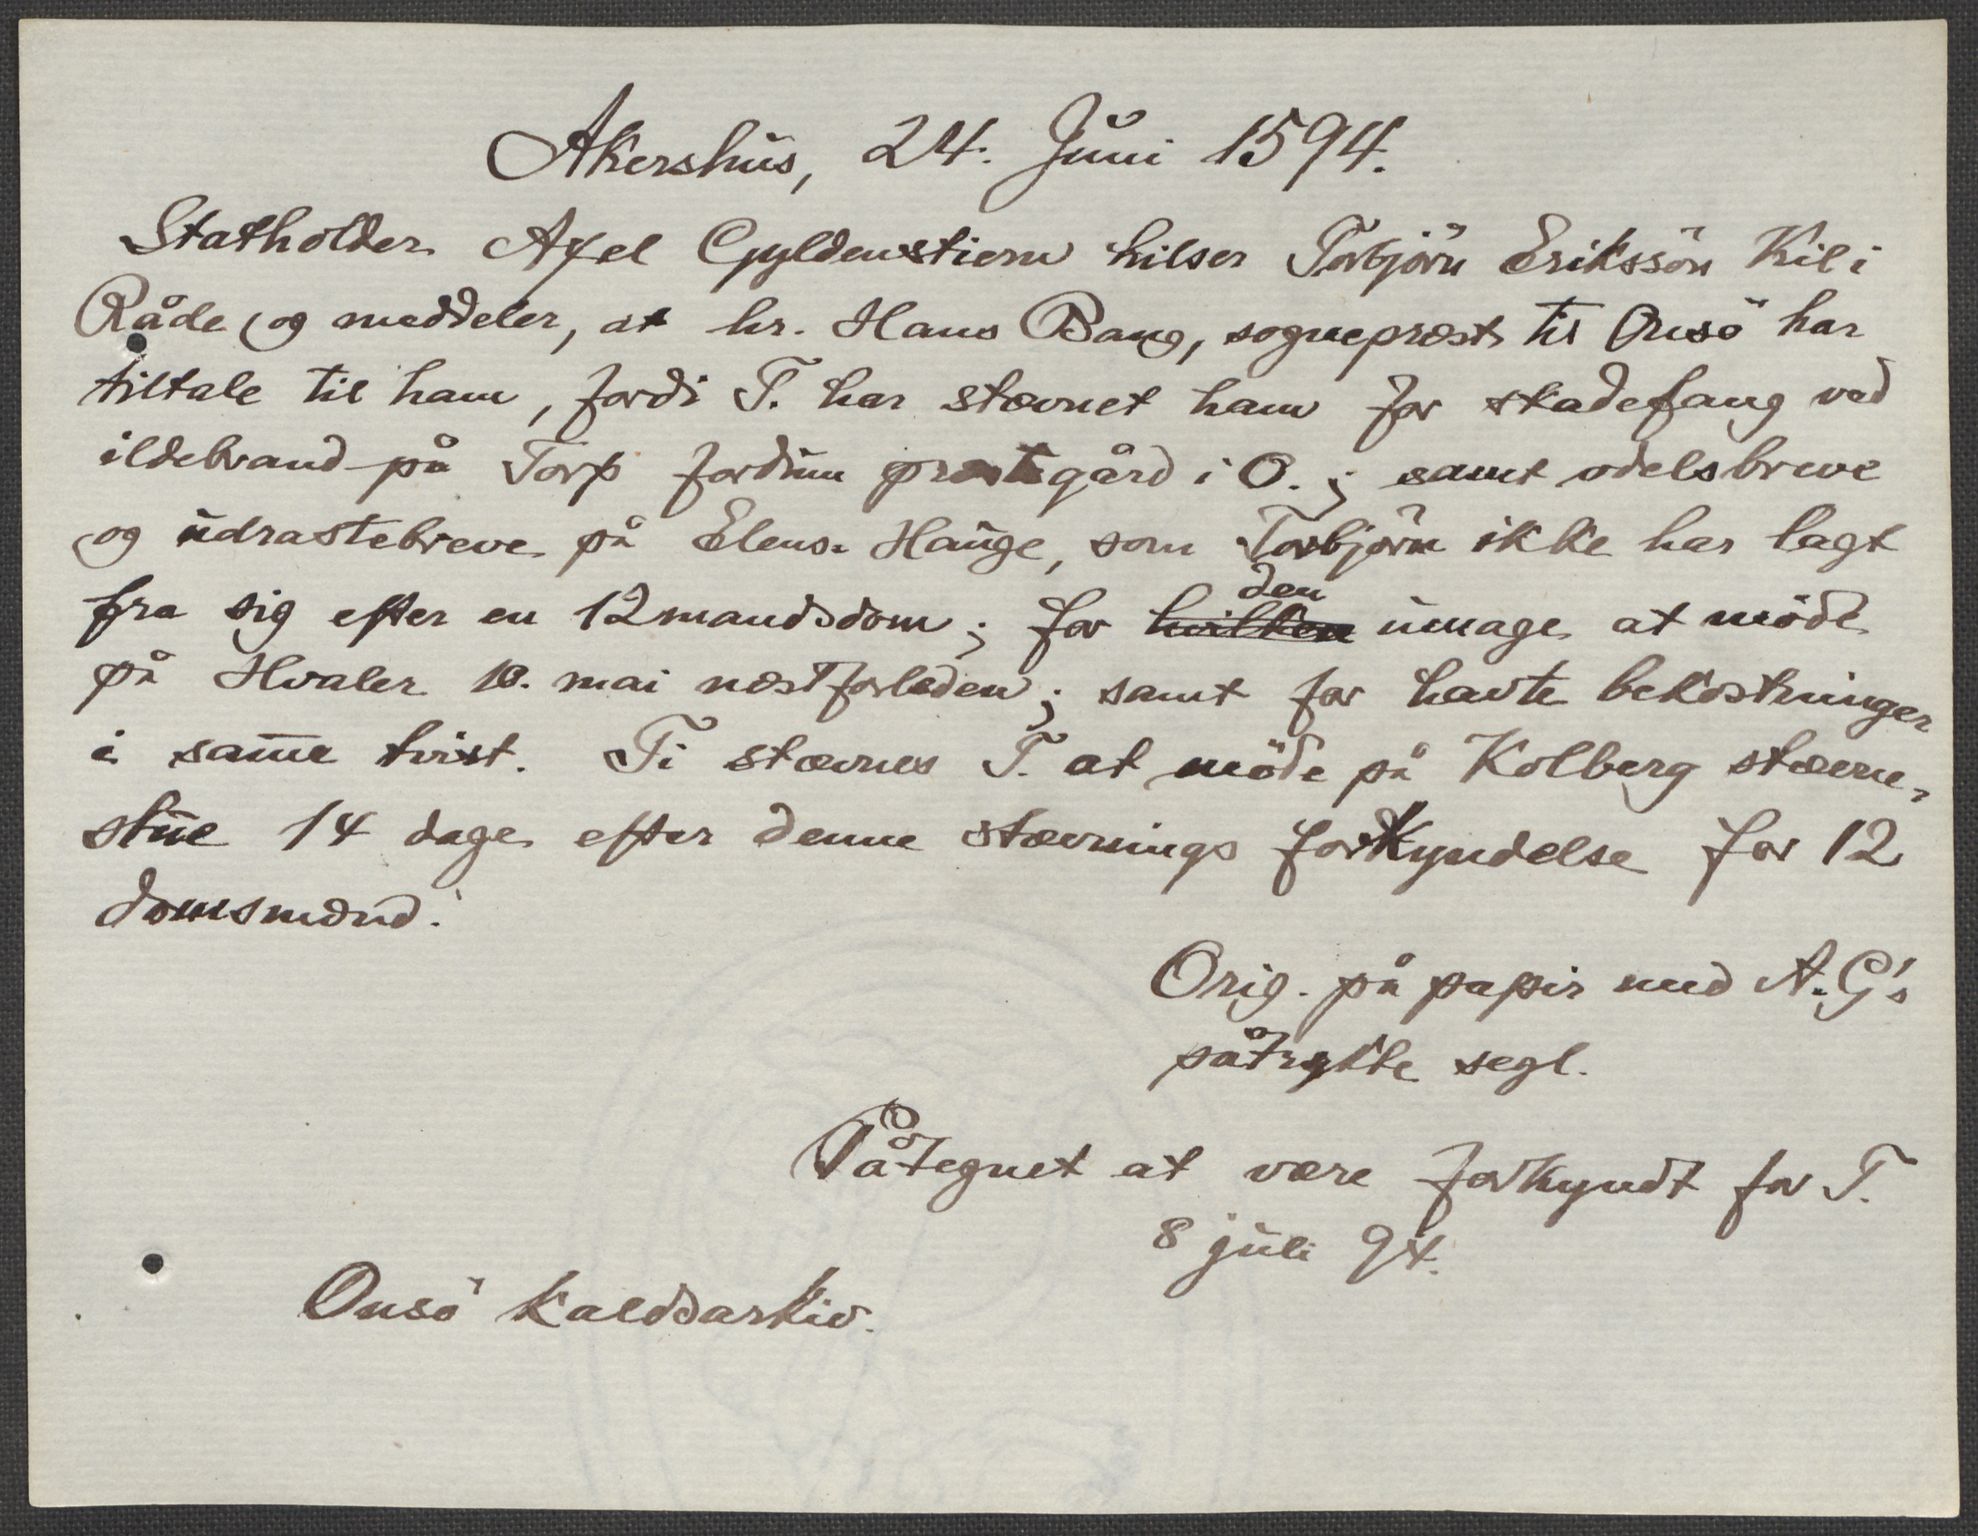 Akershus, 24. Juni 1594.
Statholder Axel Gyldenstiern hilser Torbjörn Erikssön Kil i
Råde og meddeler, at hr. Hans Bang, sogneprest til Onsö har
tiltale til ham, fordi T. har stævnet ham for skadefang ved
ildebrand på Torp fordum prestegård i O.; samt odelsbreve
og udrastebreve på Elens Hauge, som Torbjörn ikke har lagt
fra sig efter en 12mandsdom; for hvilken den umage at möde
på Hvaler 10. mai næstforleden; samt for havte bekostninger
i samme tvist. Ti stævnes T. at möde på Kolberg stævne-
stue 14 dage efter denne stævnings forkyndelse for 12
domsmænd.
Orig. på papir med A. G's
påtrykte segl.
Påtegnet at være forkyndt for T.
8 juli 94.
Onsö kaldsarkiv.